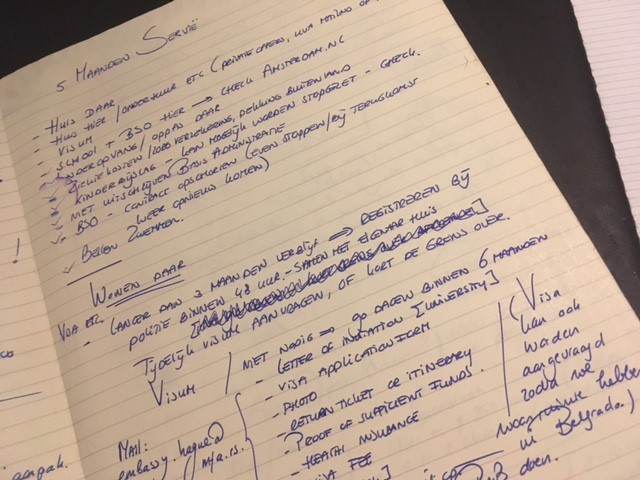 5 MAANDEN SERVIË
- HUIS DAAR
- HUIS HIER / ONDERHUUR ETC (PRIVATE OPVANG, MAILING
- VISUM
- SCHOOL + BSO HIER → CHECK AMSTERDAM.NL
- KINDEROPVANG / OPPAS DAAR
- ZIEKTEKOSTEN / ZORGVERZEKERING, DEKKING BUITENLAND
- KINDERBIJSLAG - KAN MOGELIJK WORDEN STOPGEZET - CHECK.
- NIET UITSCHRIJVEN BASIS ADMINISTRATIE
- BSO - CONTRACT OPSCHORTEN (EVEN STOPPEN / BIJ TERUGKOMST
WEER OPNIEUW KOMEN)
BELLEN ZWEMMEN.
!
WONEN DAAR
VOA ETC.
- LANGER DAN 3 MAANDEN VERBLIJF ⇒ REGISTREREN BIJ
POLITIE BINNEN 48 UUR. - SAMEN MET EIGENAAR HUIS
TIJDELIJK VISUM AANVRAGEN, OF KORT DE GRENS OVER.
VISUM / NIET NODIG ⇒ 90 DAGEN BINNEN 6 MAANDEN
- LETTER OF INVITATION [UNIVERSITY]
- VISA APPLICATION FORM
- PHOTO
- RETURN TICKET OR ITINERARY
- PROOF OF SUFFICIENT FUNDS.
- HEALTH INSURANCE
- VISA FEE
(Visa
kan ook
worden
aangevraagd
zodra we
hebben
in Belgrado.)
doen.
MAIL:
embassy.hague@
mfa.rs.
aanpak.